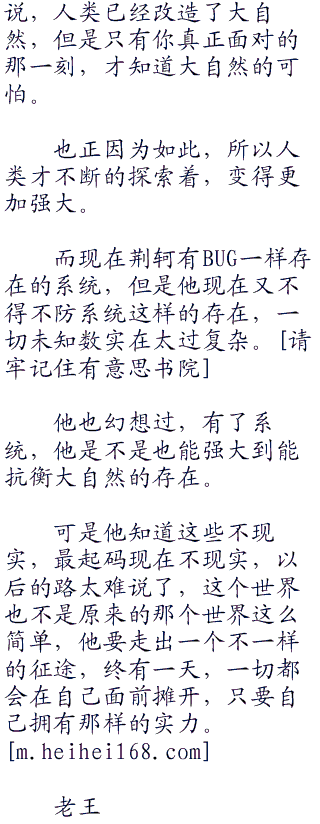 说，人类已经改造了大自
然，但是只有你真正面对的
那一刻，才知道大自然的可
怕。
也正因为如此，所以人
类才不断的探索着，变得更
加强大。
而现在荆轲有BUG一样存
在的系统，但是他现在又不
得不防系统这样的存在，一
切未知数实在太过复杂。[请
牢记住有意思书院]
他也幻想过，有了系
统，他是不是也能强大到能
抗衡大自然的存在。
可是他知道这些不现
实，最起码现在不现实，以
后的路太难说了，这个世界
也不是原来的那个世界这么
简单，他要走出一个不一样
的征途，终有一天，一切都
会在自己面前摊开，只要自
己拥有那样的实力。
[m.heihei168.com]
老王